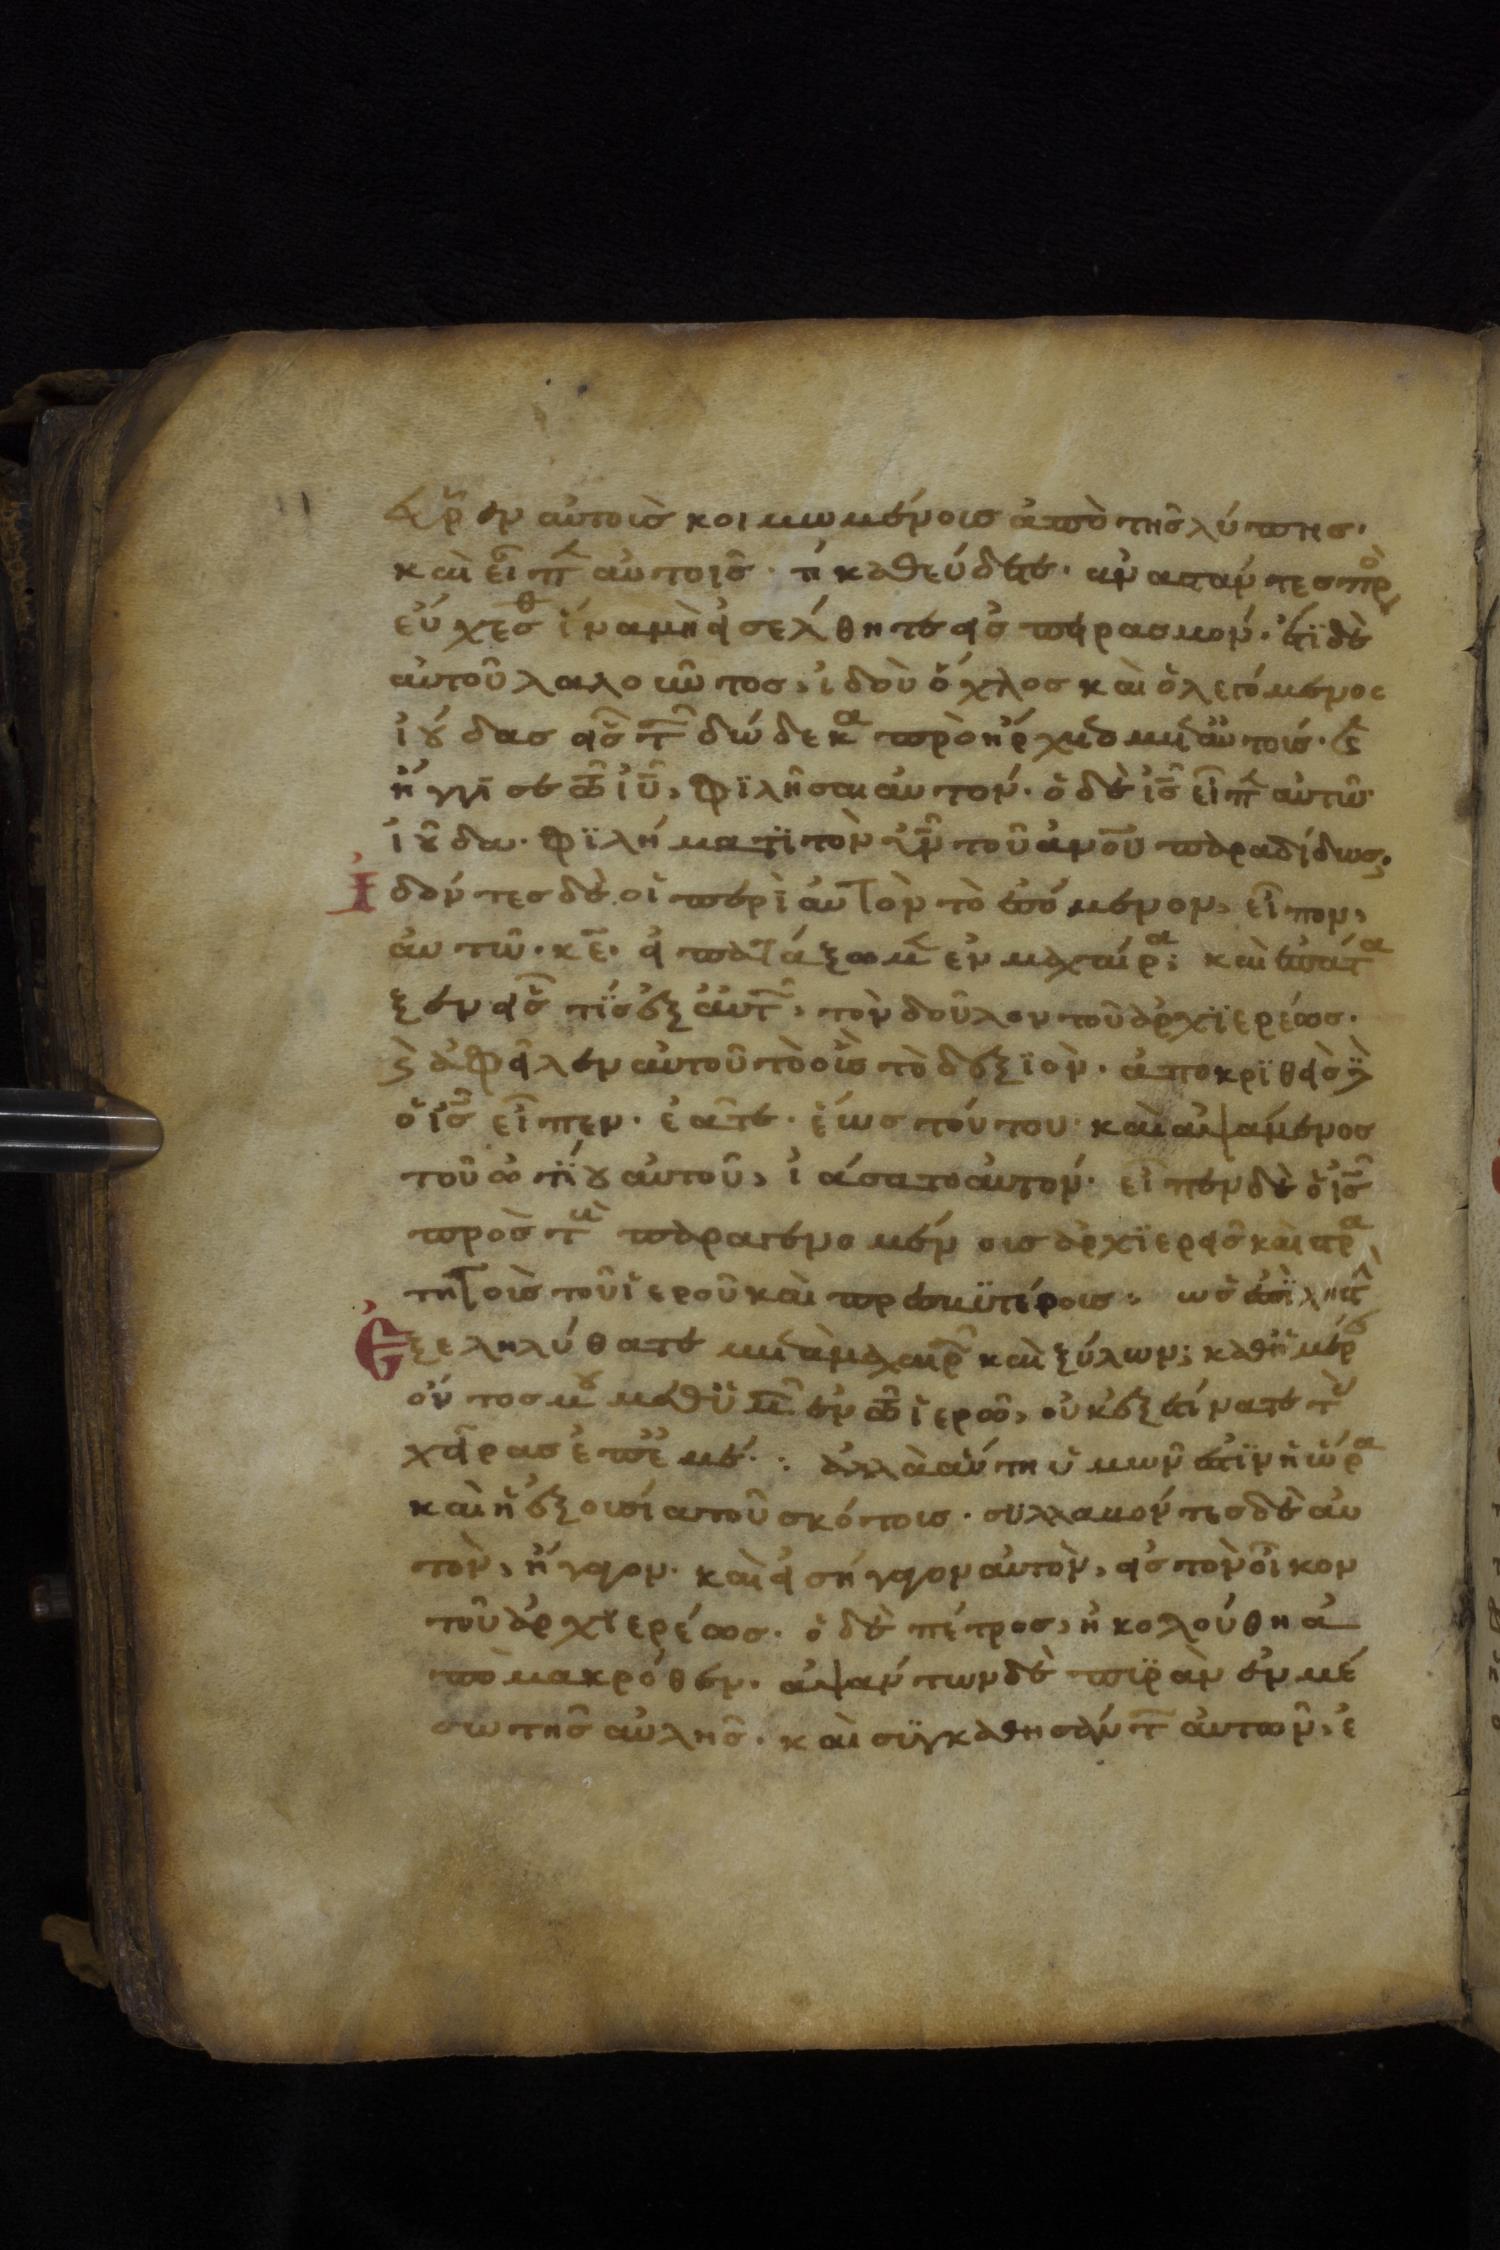 εὗρεν αὐτοὺς κοιμωμένους ἀπὸ τῆς λύπης·
καὶ εἶπεν αὐτοῖς· τί καθεύδετε· ἀναστάντες προσ
εύχεσθε ἵνα μὴ εἰσέλθητε εἰς πειρασμόν· ἔτι δὲ
αὐτοῦ λαλοῦντος, ἰδοὺ ὄχλος καὶ ὁ λεγόμενος
ἰούδας εἷς τῶν δώδεκα προήρχετο αὐτούς· καὶ
ἤγγισε τῷ ἰῦ, φιλῆσαι αὐτόν· ὁ δὲ ἰς εἶπεν αὐτῷ
ἰούδα· φιλήματι τὸν υἱὸν τοῦ ἀνου παραδίδως;
Ἰδόντες δὲ οἱ περὶ αὐτὸν τὸ ἐσόμενον, εἶπον,
αὐτῷ· κε· εἰ πατάξομεν ἐν μαχαίρα; καὶ ἐπάτα
ξεν εἷς τις ἐξ αὐτῶν, τὸν δοῦλον τοῦ ἀρχϊερέως·
καὶ ἀφεῖλεν αὐτοῦ τὸ οὖς τὸ δεξϊόν· ἀποκρϊθεὶς δὲ
ὁ ἰς εἶπεν· ἐᾶτε· ἕως τούτου· καὶ ἁψάμενος
τοῦ ὠτίου αὐτοῦ, ἰάσατο αὐτόν· εἶπεν δὲ ὁ ἰς
πρὸς τοὺς παραγενομένους ἀρχϊερεῖς καὶ στρα
τηγοὺς τοῦ ἱεροῦ καὶ πρεσβϋτέρους· ὡς ἐπὶ λῃστὴν
Ἐξεληλύθατε μετὰ μαχαιρῶν καὶ ξύλων; καθ ἡμέραν
ὄντος μου μεθ ὑμῶν ἐν τῷ ἱερῷ, οὐκ ἐξετείνατε τὰς
χεῖρας ἐπ ἐμέ· ἀλλὰ αὕτη ὑμῶν ἐστὶν ἡ ὥρα
καὶ ἡ ἐξουσία τοῦ σκότους· συλλαβόντες δὲ αὐ
τόν, ἤγαγον· καὶ εἰσήγαγον αὐτὸν, εἰς τὸν οἶκον
τοῦ ἀρχϊερέως· ὁ δὲ πέτρος, ἠκολούθη ἀ
πὸ μακρόθεν· ἁψάντων δὲ πῦρ ἐν μέ
σω τῆς αὐλῆς· καὶ συγκαθησάντων αὐτῶν, ἐ